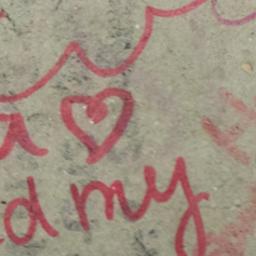 a ♡
d my